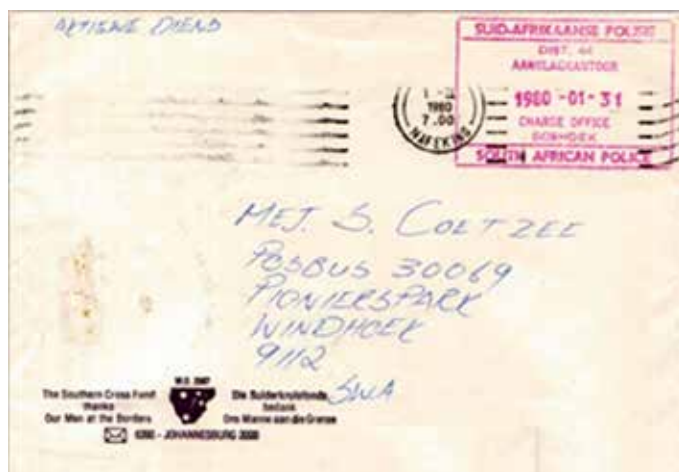 AKTIEWE DIENS
SUID-AFRIKAANSE POLISIE
DIST. 44
AANKLAGKANTOOR
1980 -01- 31
CHARGE OFFICE
SOUTH AFRICAN POLICE
1980
7.00
MAFEKING
MEJ. S. COETZEE
POSBUS 30069
PIONIERSPARK
WINDHOEK
9112
SWA
The Southern Cross Fund
thanks
Our Men at the Borders
Die Suiderkruisfonds
bedank
Ons Manne aan die Grense
JOHANNESBURG 2000